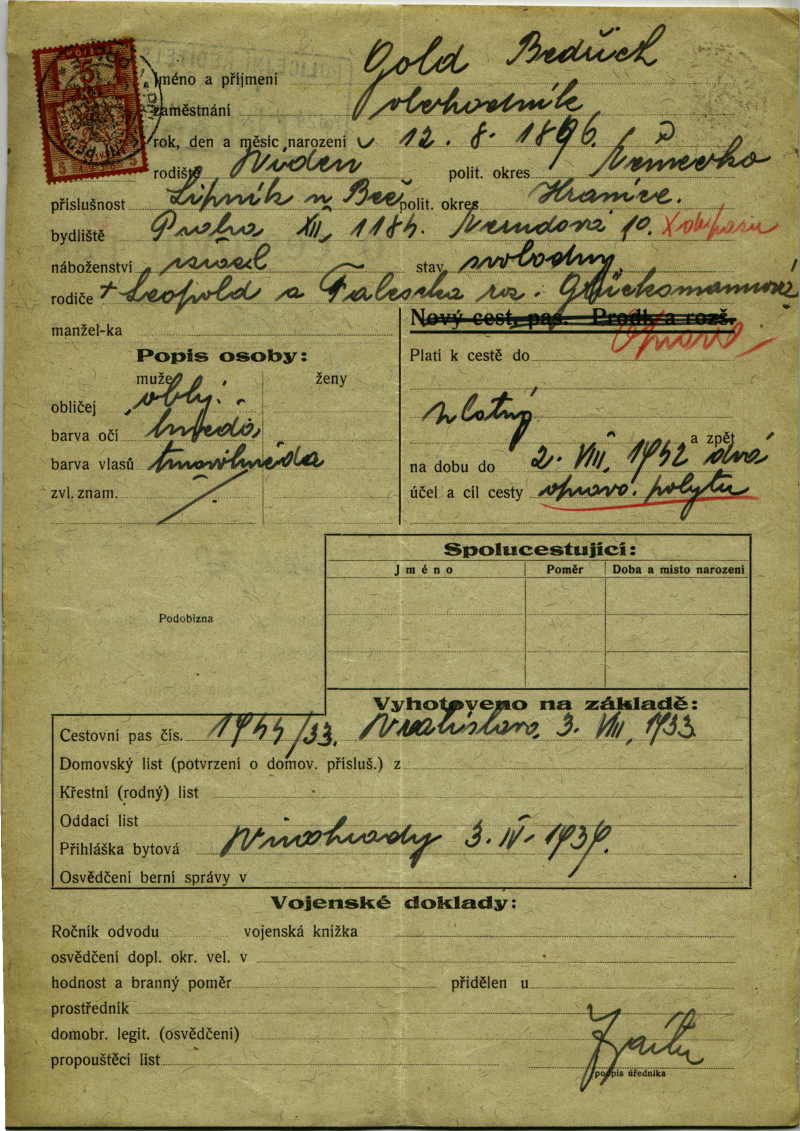 5
POLICEJNÍ ŘEDITELS
Jméno a příjmení Gold Bedřich
zaměstnání obchodník
rok, den a měsíc narození 12. 8. 1896.
rodiště Vídeň polit. okres Německo
příslušnost Lipník n Beč polit. okres Hranice.
bydliště Praha XII, 1184. Nerudova 10.
náboženství israel stav svobodný
rodiče + Leopold a roz.
manžel-ka
Nový cest. pas. Prodl. a rozš.
Popis osoby:
muže ženy
obličej oblý.
barva očí hnědá
barva vlasů tmavohnědá
zvl. znam.
Platí k cestě do
platný
a zpět
na dobu do 2. VIII. 1942
účel a cíl cesty oprava. pobytu
Podobizna
Spolucestující:
Jméno Poměr Doba a místo narození
Vyhotoveno na základě:
Cestovní pas čís. 1944/33. Vratislava, 3. VIII. 1933
Domovský list (potvrzení o domov. přísluš.) z
Křestní (rodný) list
Oddací list
Přihláška bytová Vinohrady 3. IV. 1939.
Osvědčení berní správy v
Vojenské doklady:
Ročník odvodu vojenská knížka
osvědčení dopl. okr. vel. v
hodnost a branný poměr přidělen u
prostředník
domobr. legit. (osvědčení)
propouštěcí list
podpis úředníka